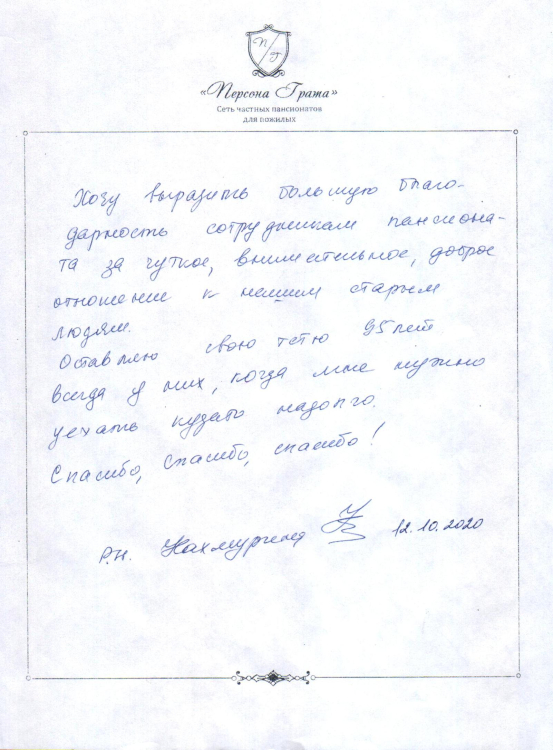 П
Г
«Персона Грата»
Сеть частных пансионатов
для пожилых
Хочу выразить большую благо-
дарность сотрудникам пансиона-
та за чуткое, внимательное, доброе
отношение к нашим старым
людям.
Оставляю свою тётю 95 лет
всегда у них, когда мне нужно
уехать куда-то надолго.
Спасибо, спасибо, спасибо!
Р.Н. 12.10.2020